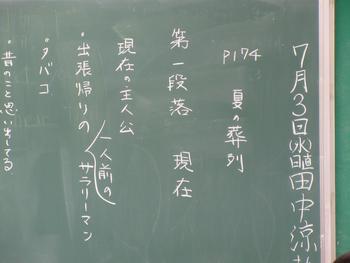 7月3日(水)日直田中涼
P174
夏の葬列
第一段落 現在
現在の主人公
一人前の
・出張帰りのサラリーマン
・タバコ
・昔のこと思い出してる